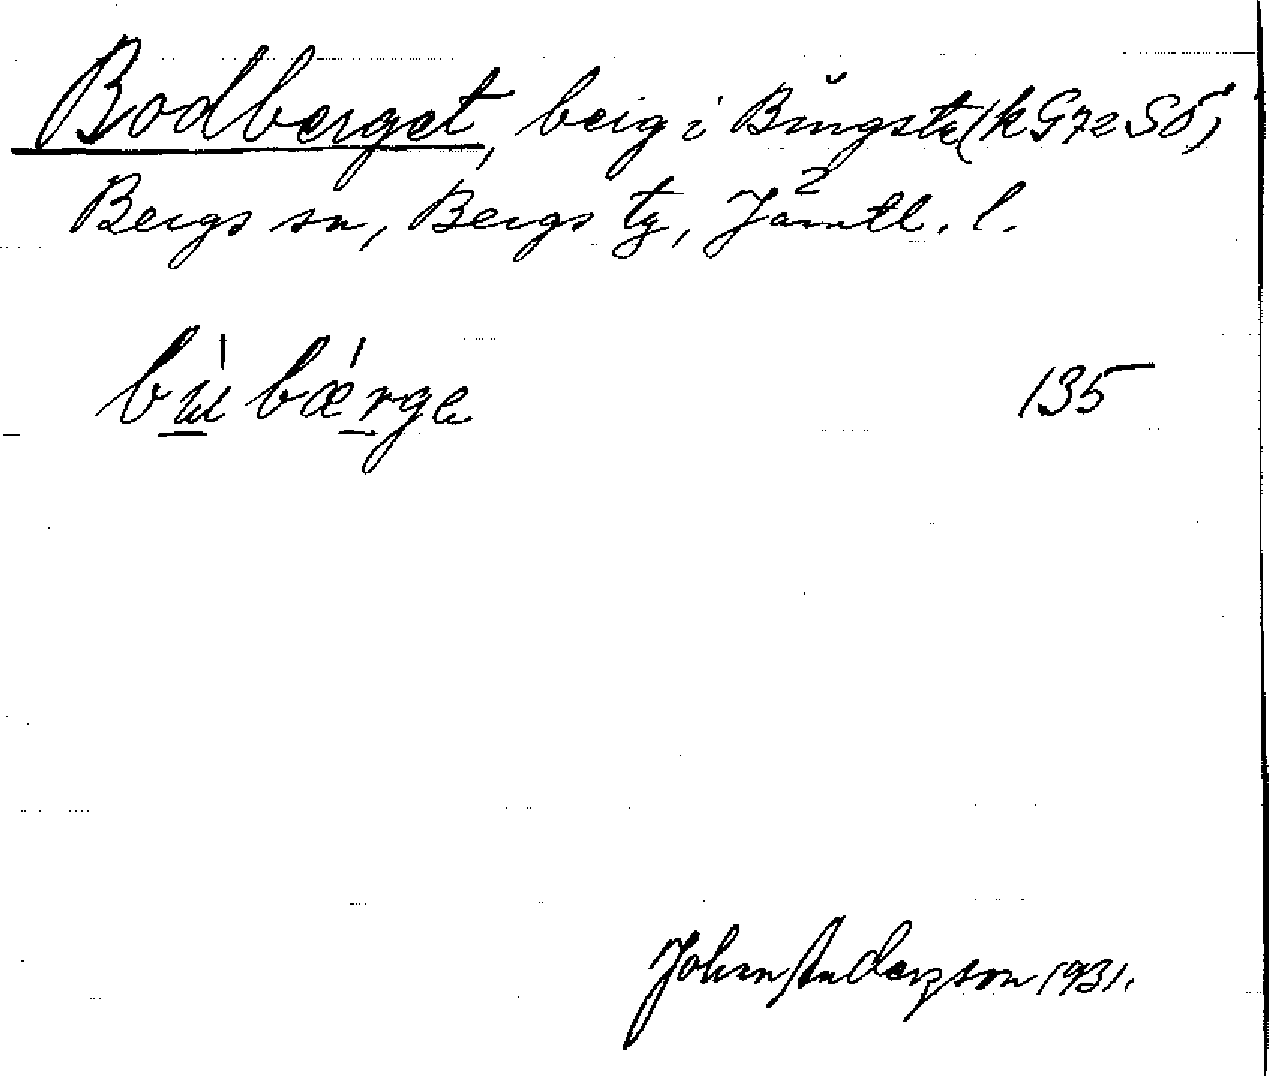 Bodberget, berg i Bingsta (k G72 SÖ)
Bergs sn, Bergs tg, Jämtl. l.
135
John Anderzson 1931.